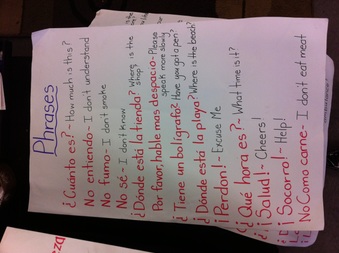 Phrases
¿Cuánto es? - How much is this?
No entiendo - I don't understand
No fumo - I don't smoke
No sé - I don't know
¿Dónde está la tienda? - Where is the shop?
Por favor, hable mas despacio - Please speak more slowly
¿Tiene un boligrafo? Have you got a pen?
¿Dónde está la playa? Where is the beach?
¡Perdon! - Excuse Me
¿Qué hora es? - What time is it?
¡Salud! - Cheers!
¡Socorro! - Help!
No Como carne - I don't eat meat
eza